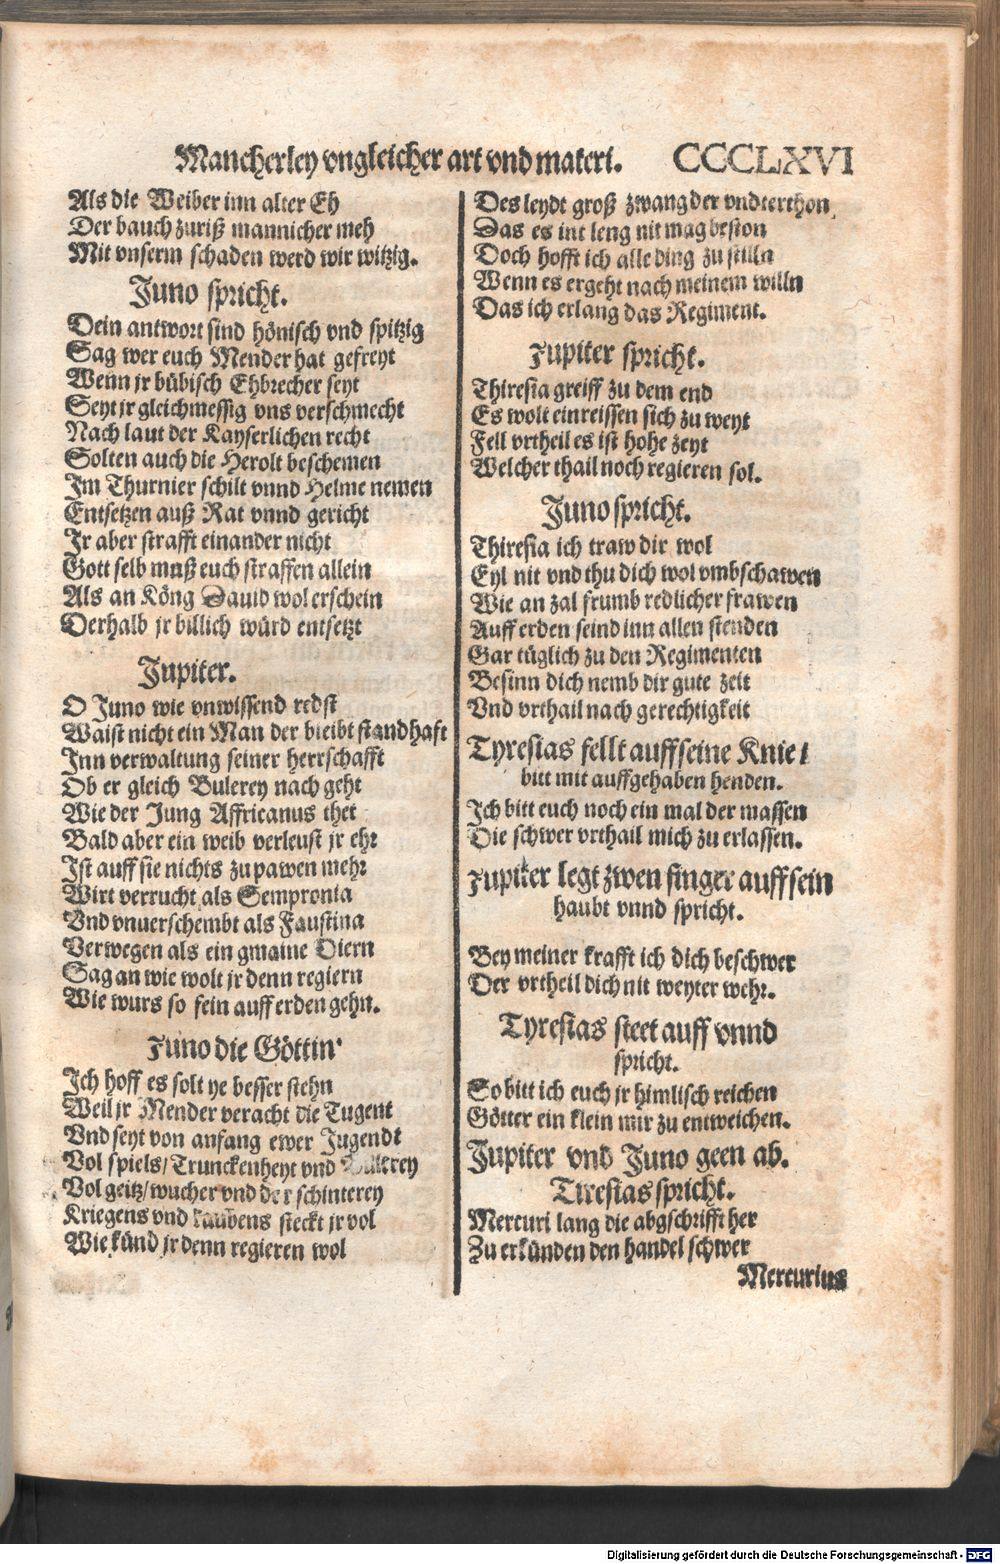 Mancherley vngleicher art vnd materi. CCCCLXVI
Als die Weiber inn alter Eh
Der bauch zuriß mannicher meh
Mit vnserm schaden werd wir witzig.
Juno spricht.
Dein antwort sind hönisch vnd spitzig
Sag wer euch Mender hat gefreyt
Wenn jr bübisch Ehbrecher seyt
Seyt jr gleichmessig vns verschmecht
Nach laut der Kayserlichen recht
Solten auch die Herolt beschemen
Im Thurnier schilt vnnd Helme nemen
Entsetzen auß Rat vnnd gericht
Ir aber strafft einander nicht
Gott selb muß euch straffen allein
Als an Köng Dauid wol erschein
Derhalb jr billich würd entsetzt
Jupiter.
O Juno wie vnwissend redst
Waist nicht ein Man der bleibt standhafft
Inn verwaltung seiner herrschafft
Ob er gleich Bulerey nach geht
Wie der Jung Affricanus thet
Bald aber ein weib verleust jr ehr
Ist auff sie nichts zu pawen mehr
Wirt verrucht als Sempronia
Vnd vnuerschembt als Faustina
Verwegen als ein gmaine Diern
Sag an wie wolt jr denn regiern
Wie wurs so fein auff erden gehn.
Juno die Göttin
Ich hoff es solt ye besser stehn
Weil jr Mender veracht die Tugent
Vnd seyt von anfang ewer Jugendt
Vol spiels/ Trunckenheyt vnd Bulerey
Vol geitz/ wucher vnd der schinterey
Kriegens vnd raubens steckt jr vol
Wie künd jr denn regieren wol
Des leydt groß zwang der vndterthon
Das es int leng nit mag beston
Doch hofft ich alle ding zu stilln
Wenn es ergeht nach meinem willn
Das ich erlang das Regiment.
Jupiter spricht.
Thiresia greiff zu dem end
Es wolt einreissen sich zu weyt
Fell vrtheil es ist hohe zeyt
Welcher thail noch regieren sol.
Juno spricht.
Thiresia ich traw dir wol
Eyl nit vnd thu dich wol vmbschawen
Wie an zal frumb redlicher frawen
Auff erden seind inn allen stenden
Gar tüglich zu den Regimenten
Besinn dich nemb dir gute zeit
Vnd vrthail nach gerechtigkeit
Tyresias fellt auff seine Knie/
bitt mit auffgehaben henden.
Ich bitt euch noch ein mal der massen
Die schwer vrthail mich zu erlassen.
Jupiter legt zwen finger auff sein
haubt vnnd spricht.
Bey meiner krafft ich dich beschwer
Der vrtheil dich nit weyter wehr.
Tyresias steet auff vnnd
spricht.
So bitt ich euch jr himlisch reichen
Götter ein klein mir zu entweichen.
Jupiter vnd Juno geen ab.
Tiresias spricht.
Mercuri lang die abgschrifft her
Zu erkünden den handel schwer
Mercurius
Digitalisierung gefördert durch die Deutsche Forschungsgemeinschaft - DFG